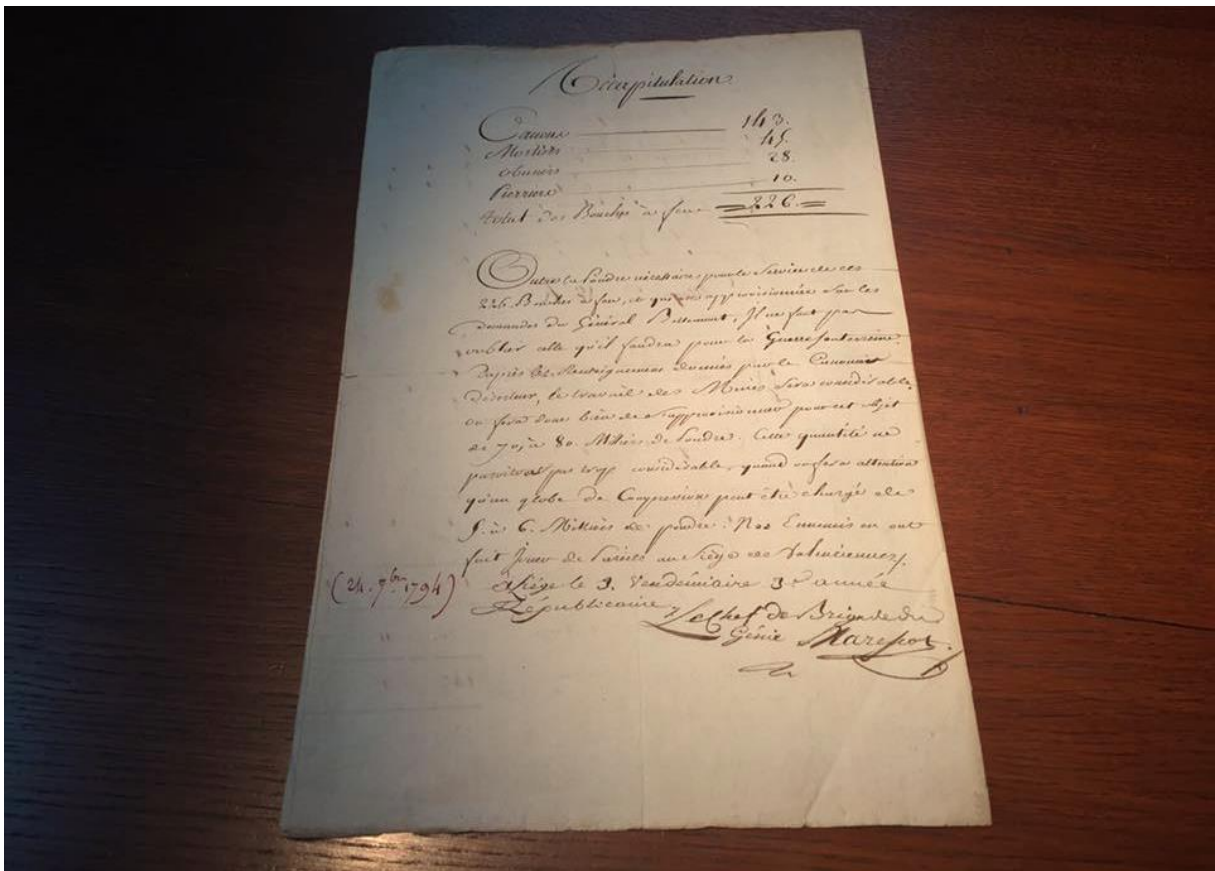 Récapitulation.
Canons 143.
Mortiers 45.
obusiers 28.
Pierriers 10.
Total des Bouches à feu 226.
Outre la Poudre nécessaire pour le Service de ces
226. Bouches à feu, et qui sera approvisionnée sur les
demandes du Général Bollemont, Il ne faut pas
oublier celle qu'il faudra pour la Guerre souterreine.
Daprès les Renseignemens donnés par le Canonnier
Déserteur, le travail des Mines sera considérable,
on fera donc bien de s'approvisionner pour cet objet
de 70, à 80. Milliers de Poudre. Cette quantité ne
paroitra pas trop considérable, quand on fera attention
qu'un globe de Compression peut être chargé de
5. à 6. Milliers de poudre. Nos Ennemis en ont
fait Jouer de Pareils au Siége de Valenciennes.
(24. 7bre 1794)
à Liége le 3. Vendémiaire 3e année
Républicaine
Le Chef de Brigade du
Génie Marescot